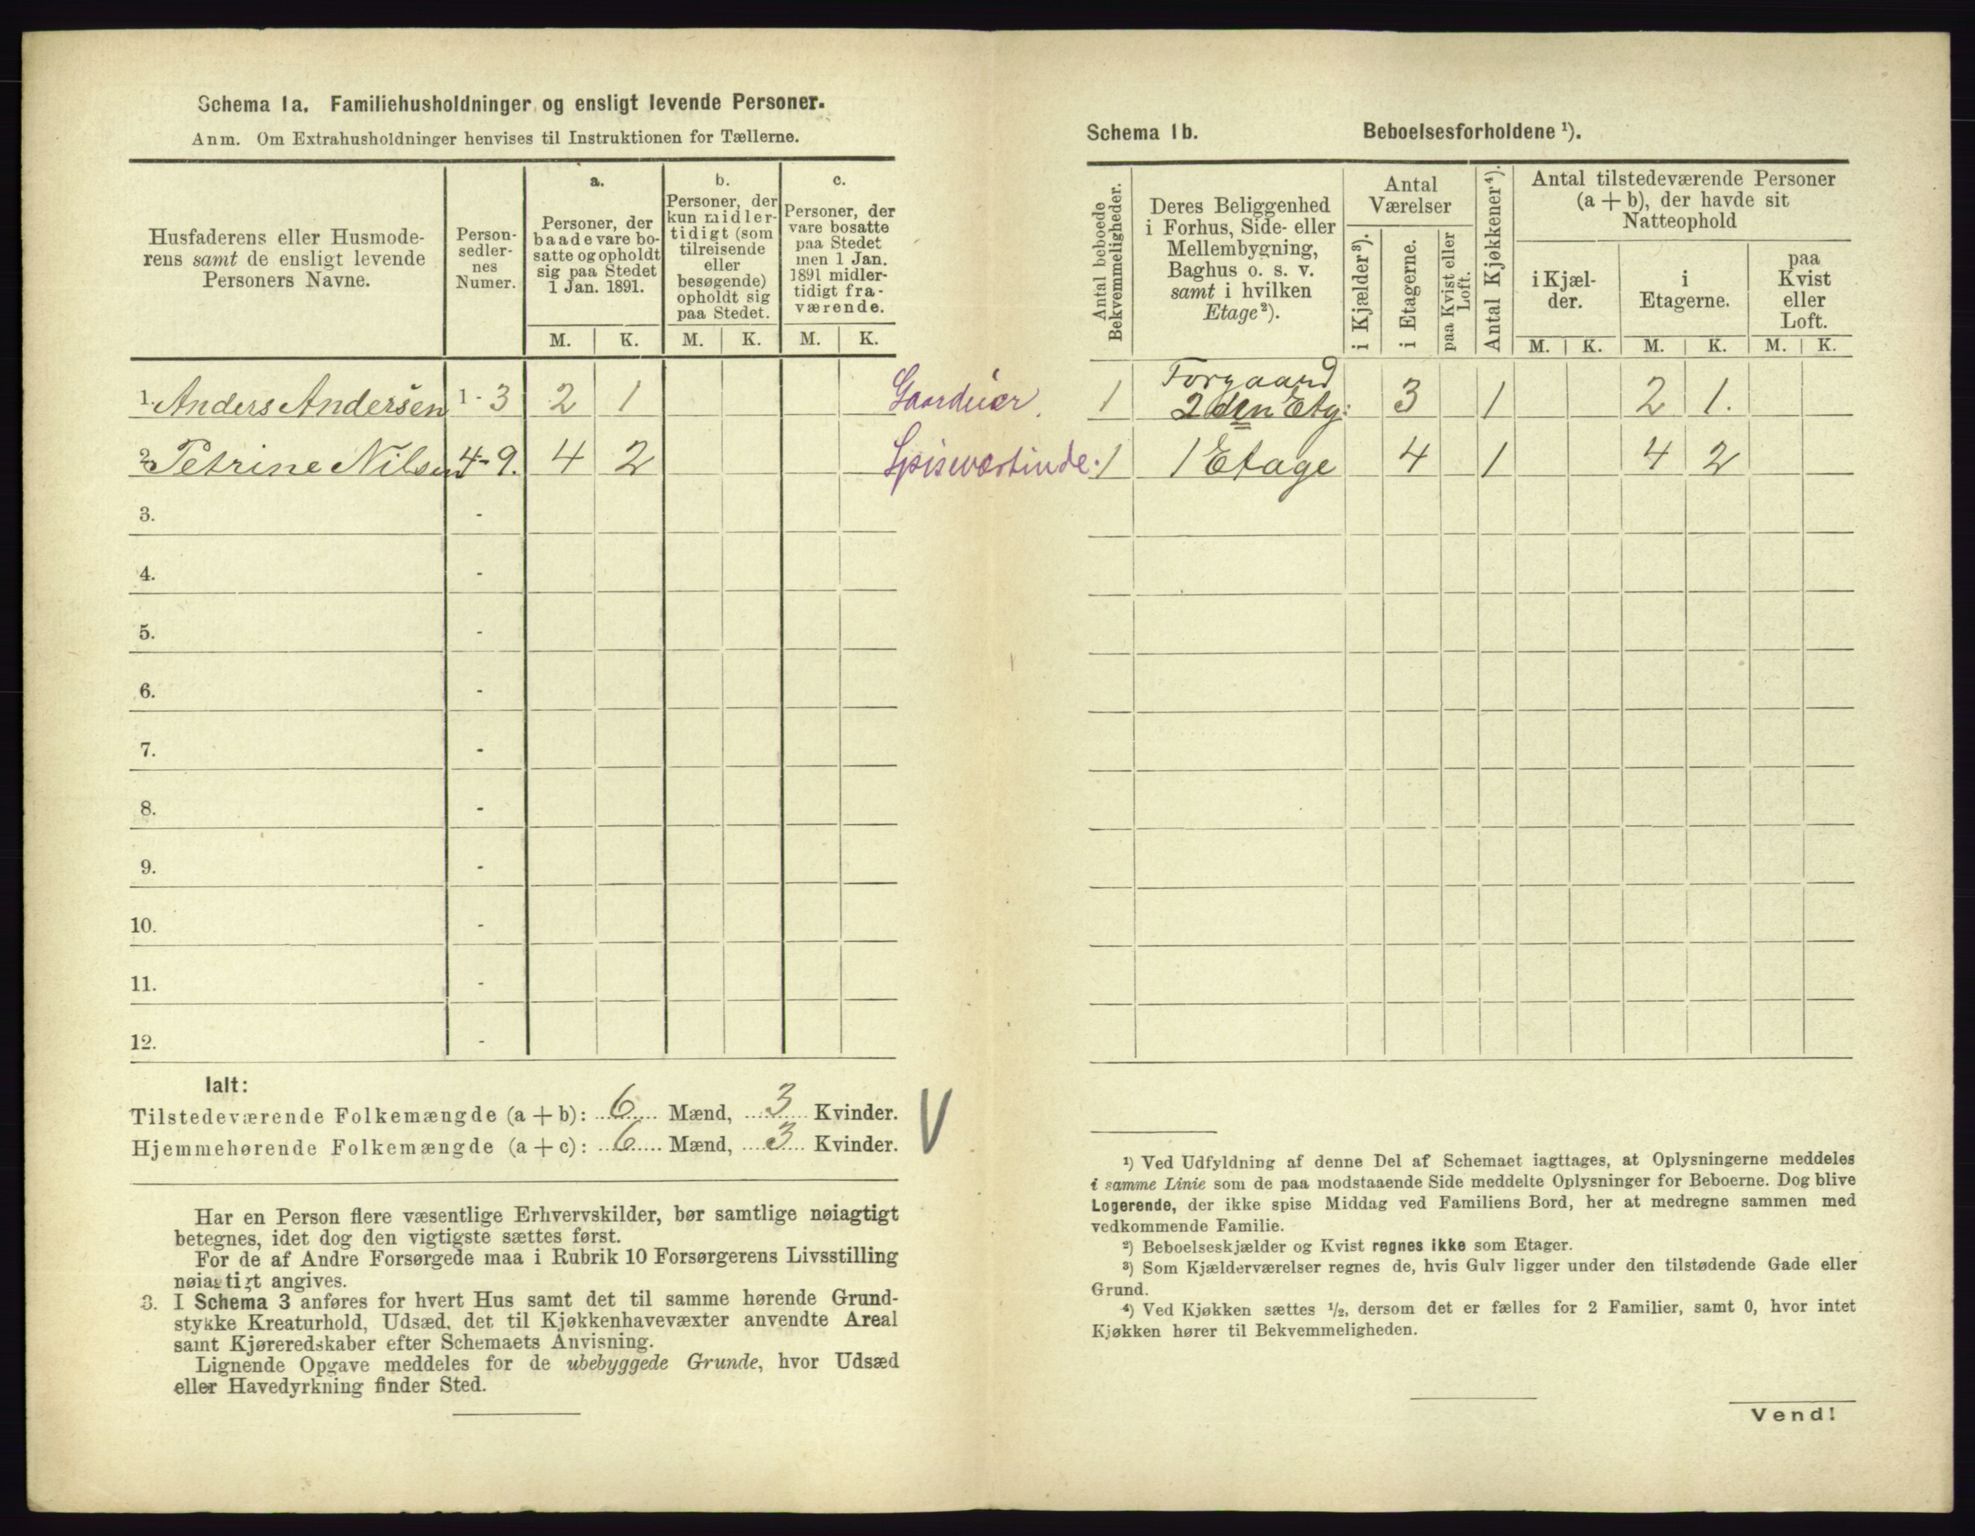 Schema 1a. Familiehusholdninger og ensligt levende Personer.
Anm. Om Extrahusholdninger henvises til Instruktionen for Tællerne.
Husfaderens eller Husmode-
rens samt de ensligt levende
Personers Navne.
Person-
sedler-
nes
Numer.
a.
Personer, der
baade vare bo-
satte og opholdt
sig paa Stedet
1 Jan. 1891.
b.
Personer, der
kun midler-
tidigt (som
tilreisende
eller
besøgende)
opholdt sig
paa Stedet.
c.
Personer, der
vare bosatte
paa Stedet
men 1 Jan.
1891 midler-
tidigt fra-
værende.
M. K. M. K. M. K.
1. Anders Andersen 1 - 3 2 1
2. Petrine Nilsen 4 - 9. 4 2 Spiseværtinde.
3. -
4. -
5. -
6. -
7. -
8. -
9. -
10. -
11. -
12. -
Ialt:
Tilstedeværende Folkemængde (a + b): 6 Mænd, 3 Kvinder.
Hjemmehørende Folkemængde (a + c): 6 Mænd, 3 Kvinder.
V
Har en Person flere væsentlige Erhvervskilder, bør samtlige nøiagtigt
betegnes, idet dog den vigtigste sættes først.
For de af Andre Forsørgede maa i Rubrik 10 Forsørgerens Livsstilling
nøiagtigt angives.
3. I Schema 3 anføres for hvert Hus samt det til samme hørende Grund-
stykke Kreaturhold, Udsæd, det til Kjøkkenhavevæxter anvendte Areal
samt Kjøreredskaber efter Schemaets Anvisning.
Lignende Opgave meddeles for de ubebyggede Grunde, hvor Udsæd
eller Havedyrkning finder Sted.
Schema 1b. Beboelsesforholdene ¹).
Antal beboede
Bekvemmeligheder.
Deres Beliggenhed
i Forhus, Side- eller
Mellembygning,
Baghus o. s. v.
samt i hvilken
Etage²).
Antal
Værelser
i Kjælder³).
i Etagerne.
paa Kvist eller
Loft.
Antal Kjøkkener⁴).
Antal tilstedeværende Personer
(a + b), der havde sit
Natteophold
i Kjæl-
der.
i
Etagerne.
paa
Kvist
eller
Loft.
M. K. M. K. M. K.
1 Forgaard
2den Etg: 3 1 2 1.
1 1 Etage 4 1 4 2
¹) Ved Udfyldning af denne Del af Schemaet iagttages, at Oplysningerne meddeles
i samme Linie som de paa modstaaende Side meddelte Oplysninger for Beboerne. Dog blive
Logerende, der ikke spise Middag ved Familiens Bord, her at medregne sammen med
vedkommende Familie.
²) Beboelseskjælder og Kvist regnes ikke som Etager.
³) Som Kjælderværelser regnes de, hvis Gulv ligger under den tilstødende Gade eller
Grund.
⁴) Ved Kjøkken sættes ½, dersom det er fælles for 2 Familier, samt 0, hvor intet
Kjøkken hører til Bekvemmeligheden.
Vend!